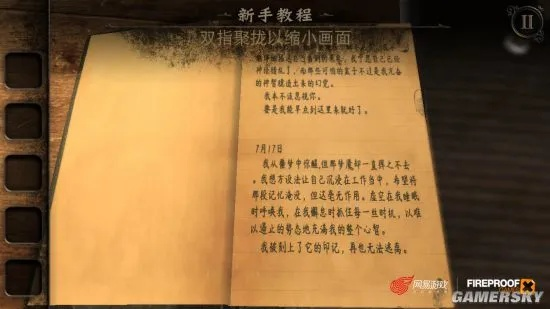 新手教程
双指聚拢以缩小画面
II
神经错乱了，而那些可怕的盒子不过是我无备
的神智臆造出来的幻觉。
我本不该忽视你。
要是我能早点到这里来就好了。
7月17日
我从噩梦中惊醒,但那梦魇却一直挥之不去
。我想方设法让自己沉浸在工作当中，希望将
那段记忆淹没，但这毫无作用。虚空在我睡眠
时呼唤我，在我懈怠时抓住每一丝时机，以难
以遏止的势态地充满我的整个心智。
我被刻上了它的印记，再也无法逃离。
网易游戏
FIREPROOF
GAMERSKY